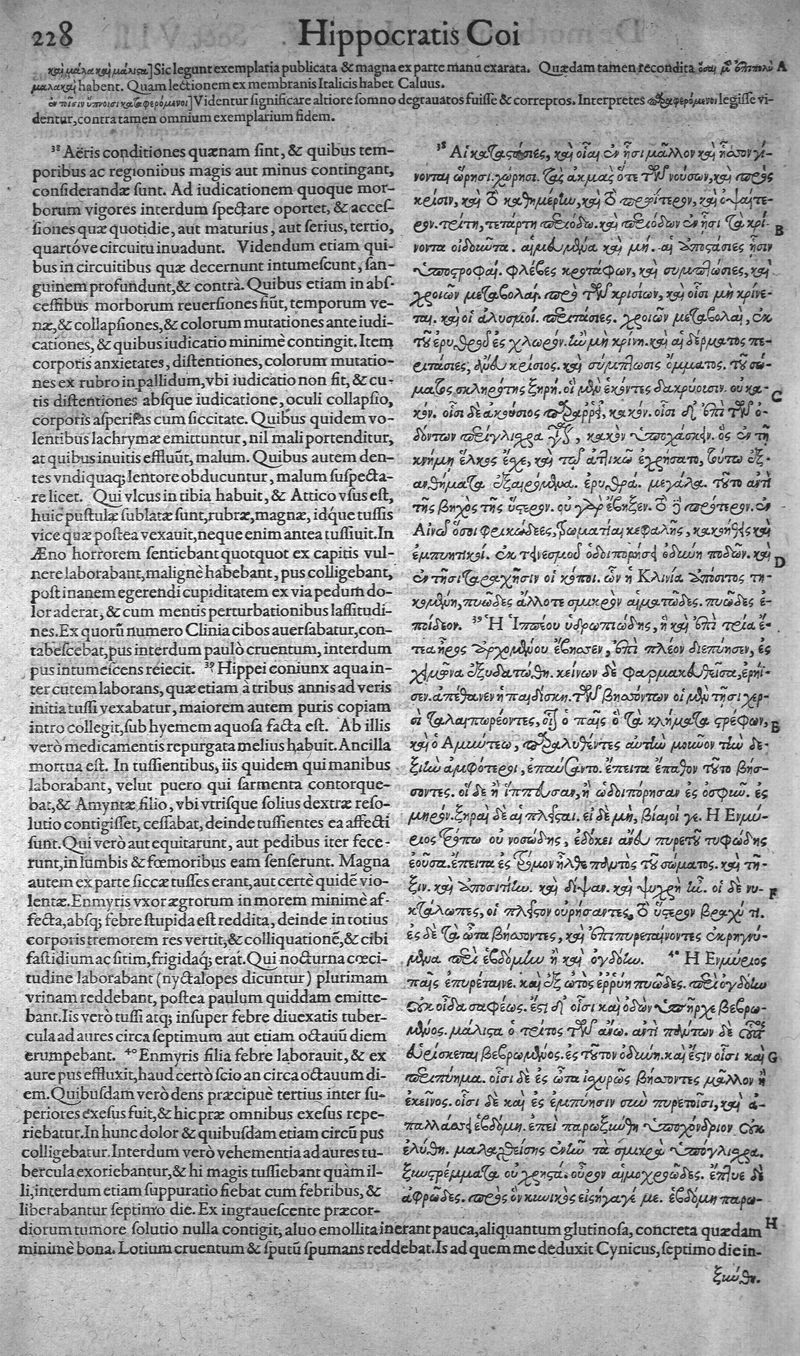 228 Hippocratis Coi
καὶ μάλα καὶ μάλιστα] Sic legunt exemplaria publicata & magna ex parte manu exarata. Quædam tamen recondita A
habent. Quam lectionem ex membranis Italicis habet Caluus.
Videntur significare altiore somno degrauatos fuisse & correptos. Interpretes legisse vi-
dentur, contra tamen omnium exemplarium fidem.
³⁸ Aëris conditiones quænam sint, & quibus tem-
poribus ac regionibus magis aut minus contingant,
considerandæ sunt. Ad iudicationem quoque mor-
borum vigores interdum spectare oportet, & acces-
siones quæ quotidie, aut maturius, aut serius, tertio,
quartóve circuitu inuadunt. Videndum etiam qui-
bus in circuitibus quæ decernunt intumescunt, san-
guinem profundunt, & contrà. Quibus etiam in abs-
cessibus morborum reuersiones fiūt, temporum ve-
næ, & collapsiones, & colorum mutationes ante iudi-
cationes, & quibus iudicatio minimè contingit. Item
corporis anxietates, distentiones, colorum mutatio-
nes ex rubro in pallidum, vbi iudicatio non fit, & cu-
tis distentiones absque iudicatione, oculi collapsio,
corporis asperitas cum siccitate. Quibus quidem vo-
lentibus lachrymæ emittuntur, nil mali portenditur,
at quibus inuitis effluūt, malum. Quibus autem den-
tes vndiquaq; lentore obducuntur, malum suspecta-
re licet. Qui vlcus in tibia habuit, & Attico vsus est,
huic pustulæ sublatæ sunt, rubræ, magnæ, idque tussis
vice quæ postea vexauit, neque enim antea tussiuit. In
Æno horrorem sentiebant quotquot ex capitis vul-
nere laborabant, malignè habebant, pus colligebant,
post inanem egerendi cupiditatem ex via pedum do-
lor aderat, & cum mentis perturbationibus lassitudi-
nes. Ex quorū numero Clinia cibos auersabatur, con-
tabescebat, pus interdum paulò cruentum, interdum
pus intumescens reiecit. ³⁹ Hippei coniunx aqua in-
ter cutem laborans, quæ etiam à tribus annis ad veris
initia tussi vexabatur, maiorem autem puris copiam
intro collegit, sub hyemem aquosa facta est. Ab illis
verò medicamentis repurgata melius habuit. Ancilla
mortua est. In tussientibus, iis quidem qui manibus
laborabant, velut puero qui sarmenta contorque-
bat, & Amyntæ filio, vbi vtrisque solius dextræ reso-
lutio contigisset, cessabat, deinde tussientes ea affecti
sunt. Qui verò aut equitarunt, aut pedibus iter fece-
runt, in lumbis & fœmoribus eam senserunt. Magna
autem ex parte siccæ tusses erant, aut certè quidē vio-
lentæ. Enmyris vxor ægrotum in morem minimè af-
fecta, absq; febre stupida est reddita, deinde in totius
corporis tremorem res vertit, & colliquationē, & cibi
fastidium ac sitim, frigidaq; erat. Qui nocturna cœci-
tudine laborabant (nyctalopes dicuntur) plurimam
vrinam reddebant, postea paulum quiddam emitte-
bant. Iis verò tussi atq; insuper febre diuexatis tuber-
cula ad aures circa septimum aut etiam octauū diem
erumpebant. ⁴⁰ Enmyris filia febre laborauit, & ex
aure pus effluxit, haud certò scio an circa octauum di-
em. Quibusdam verò dens præcipuè tertius inter su-
periores exesus fuit, & hic præ omnibus exesus repe-
riebatur. In hunc dolor & quibusdam etiam circū pus
colligebatur. Interdum verò vehementia ad aures tu-
bercula exoriebantur, & hi magis tussiebant quàm il-
li, interdum etiam suppuratio fiebat cum febribus, &
liberabantur septimo die. Ex ingrauescente præcor-
³⁸ Αἱ καταστάσιες, καὶ οἷαι ἐν ᾗσι μᾶλλον καὶ ἧσσον γί-
νονται ὥρῃσι. χώρῃσι. τὰς ἀκμὰς ὅτε τῶν νούσων, καὶ πρὸς
κρίσιν, καὶ τὸ καθημέριον, καὶ τὸ πρωΐτερον, καὶ ὀψαίτε-
ρον. τρίτη, τετάρτη περιόδῳ. καὶ περιόδων ἐν ᾗσι τὰ κρί- B
νοντα οἰδέοντα. αἱμ καὶ μή. αἱ ἀποστάσιες ᾗσιν
ὑποστροφαί. φλέβες κροτάφων, καὶ συμπτώσιες, καὶ
χροιῶν μεταβολαί. πρὸ τῶν κρισίων, καὶ οἷσι μὴ κρίνε-
ται. καὶ οἱ ἀλυσμοί. περιτάσιες. χροιῶν μεταβολαὶ, ἐκ
τοῦ ἐρυθροῦ ἐς χλωρόν. ἢν μὴ κρίνῃ. καὶ αἱ δέρματος πε-
ριτάσιες, ἄνευ κρίσιος. καὶ σύμπτωσις ὄμματος. τοῦ σώ-
ματος σκληρότης ξηρή. οἱ μὲν ἑκόντες δακρύουσιν. οὐ κα- C
κόν. οἷσι δὲ ἀκούσιος παραρρεῖ, κακόν. οἷσι δ' ἐπὶ τῶν ὀ-
δόντων περίγλισχρα κακὸν ὑποχάσκειν. ὃς ἐν τῇ
κνήμῃ ἕλκος εἶχε, καὶ τῷ ἀττικῷ ἐχρήσατο, τούτῳ ἐξ-
ανθήματα ἐρυθρὰ. μεγάλα. τοῦτο ἀντὶ
τῆς βηχὸς τῆς ὕστερον. οὐ γὰρ ἔβηξεν. τὸ πρότερον. ἐν
Αἴνῳ ὅσοι φρικώδεες, τρωματίαι κεφαλῆς, κακοήθεες καὶ
ἐμπυητικοί. ἐκ τεινεσμοῦ ὁδοιπορήσῃ ὀδύνη ποδῶν. καὶ D
ἐν τῇσι ταραχῇσιν οἱ κόποι. ὧν ἡ Κλινία ἀπόσιτος τη-
κομένη, πυῶδες ἄλλοτε σμικρὸν αἱματῶδες. πυῶδες ἐ-
ποίδεον. ³⁹ Ἡ Ἱππέου ὑδρωπιώδης, ἣ καὶ ἐπὶ τρία ἔ-
τεα ἦρος ἀρχομένου ἔβησσεν, ἐπὶ πλέον διεπύησεν, ἐς
χειμῶνα ἐξυδατώθη. κείνων δὲ φαρμακευθεῖσα, ἐρήϊ-
σεν. ἀπέθανεν ἡ παιδίσκη. τῶν βησσόντων οἱ μὲν τῇσι χερ-
σὶ ταλαιπωρέοντες, ὁ παῖς ὁ τὰ κλήματα στρέφων, E
καὶ ὁ Ἀμύντεω, παραλυθέντες αὐτέων μοῦνον τὴν δε-
ξιὴν ἀμφότεροι, ἐπαύοντο. ἔπειτα ἔπαθον τοῦτο βήσ-
σοντες. οἱ δὲ ἢ ἱππεῦσαν, ἢ ὡδοιπόρησαν ἐς ὀσφύν. ἐς
μηρόν. ξηραὶ δὲ αἱ πλεῖσται. εἰ δὲ μὴ, βίαιοί γε. Ἡ Ἐνμύ-
ριος τρόπῳ οὐ νοσώδης, ἐδόκει ἄνευ πυρετοῦ τυφώδης
ἐοῦσα. ἔπειτα ἐς τρόμον ἦλθε πάντος τοῦ σώματος. καὶ τῆ-
ξιν. καὶ ἀποσιτίην. καὶ δίψαν. καὶ ψυχρὴ ἦν. οἱ δὲ νυ- F
κτάλωπες, οἱ πλεῖστον οὐρήσαντες, τὸ ὕστερον βραχύ τι.
ἐς δὲ τὰ ὦτα βήσσοντες, καὶ ἐπιπυρεταίνοντες ἐκρηγνύ-
μενα περὶ ἑβδόμην ἢ καὶ ὀγδοίην. ⁴⁰ Ἡ Ἐνμύριος
παῖς ἐπυρέταινε. καὶ ἐξ ὠτὸς ἐῤῥύη πυῶδες. περὶ ὀγδοίην
οὐκ οἶδα σαφέως. ἔστι δ' οἷσι καὶ ὀδὼν ὑπῆρχε βεβρω-
μένος. μάλιστα ὁ τρίτος τῶν ἄνω. ἀντὶ πάντων δὲ οὗτος
εὑρίσκεται βεβρωμένος. ἐς τοῦτον ὀδύνη. καὶ ἔστιν οἷσι καὶ G
περιεπύημα. οἷσι δὲ ἐς ὦτα ἰσχυρῶς βήσσοντες μᾶλλον ἢ
ἐκεῖνος. οἷσι δὲ καὶ ἐς ἐμπύησιν σὺν πυρετοῖσι, καὶ ἀ-
παλλάσσῃ ἑβδόμῃ. ἐπεὶ παρωξύνθη ὑποχόνδριον οὐκ
ἐλύθη. μαλαχθείσης τὰ σμικρὰ ὑπογλίσχρα.
ξυστρέμματα οὐ χρηστά. οὖρον αἱμόχροες. ἔπτυε δὲ
ἀφρῶδες. πρὸς ὃν κυνικὸς εἰσήγαγέ με. ἑβδόμῃ παρω-
diorum tumore solutio nulla contigit, aluo emollita inerant pauca, aliquantum glutinosa, concreta quædam H
minimè bona. Lotium cruentum & sputū spumans reddebat. Is ad quem me deduxit Cynicus, septimo die in-
ξύνθη.